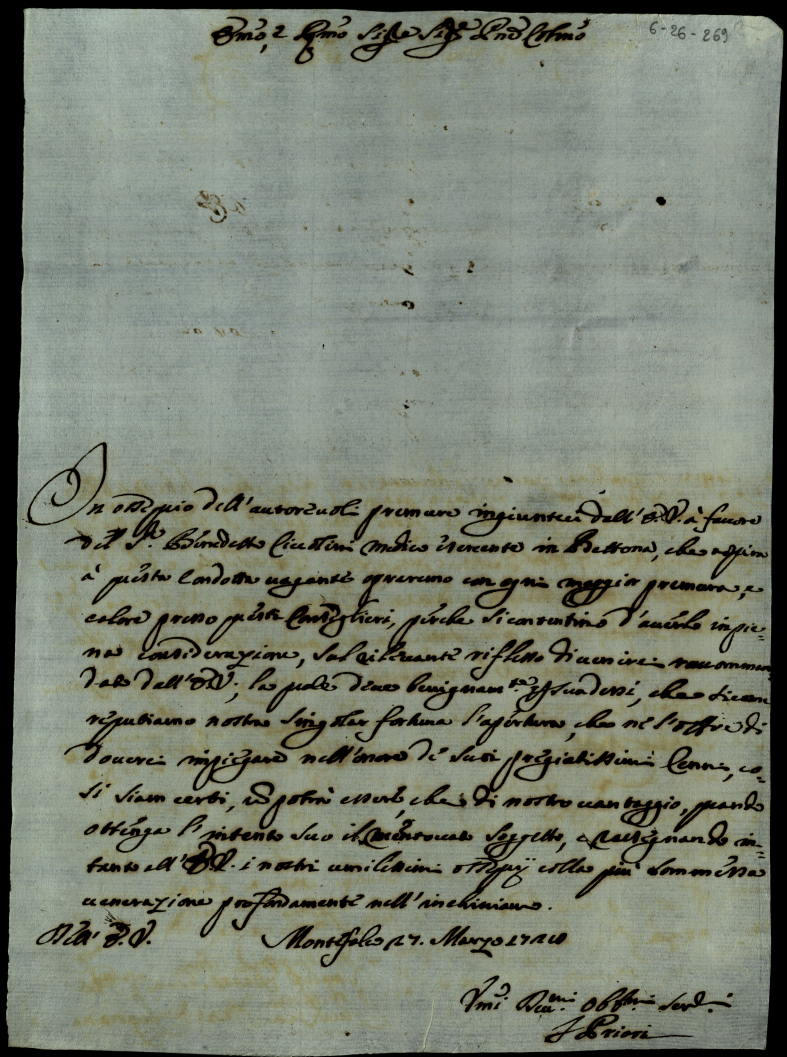 Emo, e Rmo Sigre Sigre Pne Colmo
6-26-269
In ossequio dell'autorevoli premure ingiunteci dall'E.V. à favore
del Sr. Benedetto Ciccolini medico esercente in Bettona, che aspira
à questa Condotta vagante opreremo con ogni maggior premura, e
calore presso questi Consiglieri, perche si contentino d'averlo in pie=
na considerazione, sul rilevante riflesso di venire raccoman
dato dall'E.V.; la quale deve benignamte persuadersi, che sicome
reputiamo nostra singolar fortuna l'apertura, che ne s'offre di
doverci impiegare nell'onore de suoi pregiatissimi Cenni, co=
si siam certi, non potrà essere, che di nostro vantaggio, quando
ottenga l'intento suo il mentovato soggetto, e rassegnando in=
tanto all'E.V. i nostri umilissimi ossequij colla più sommessa
venerazione profondamente nell'inchiniamo.
Dell' E.V.
Montefalco 27. Marzo 1720
Vmi Devmi Obbmi Serri
I Priori